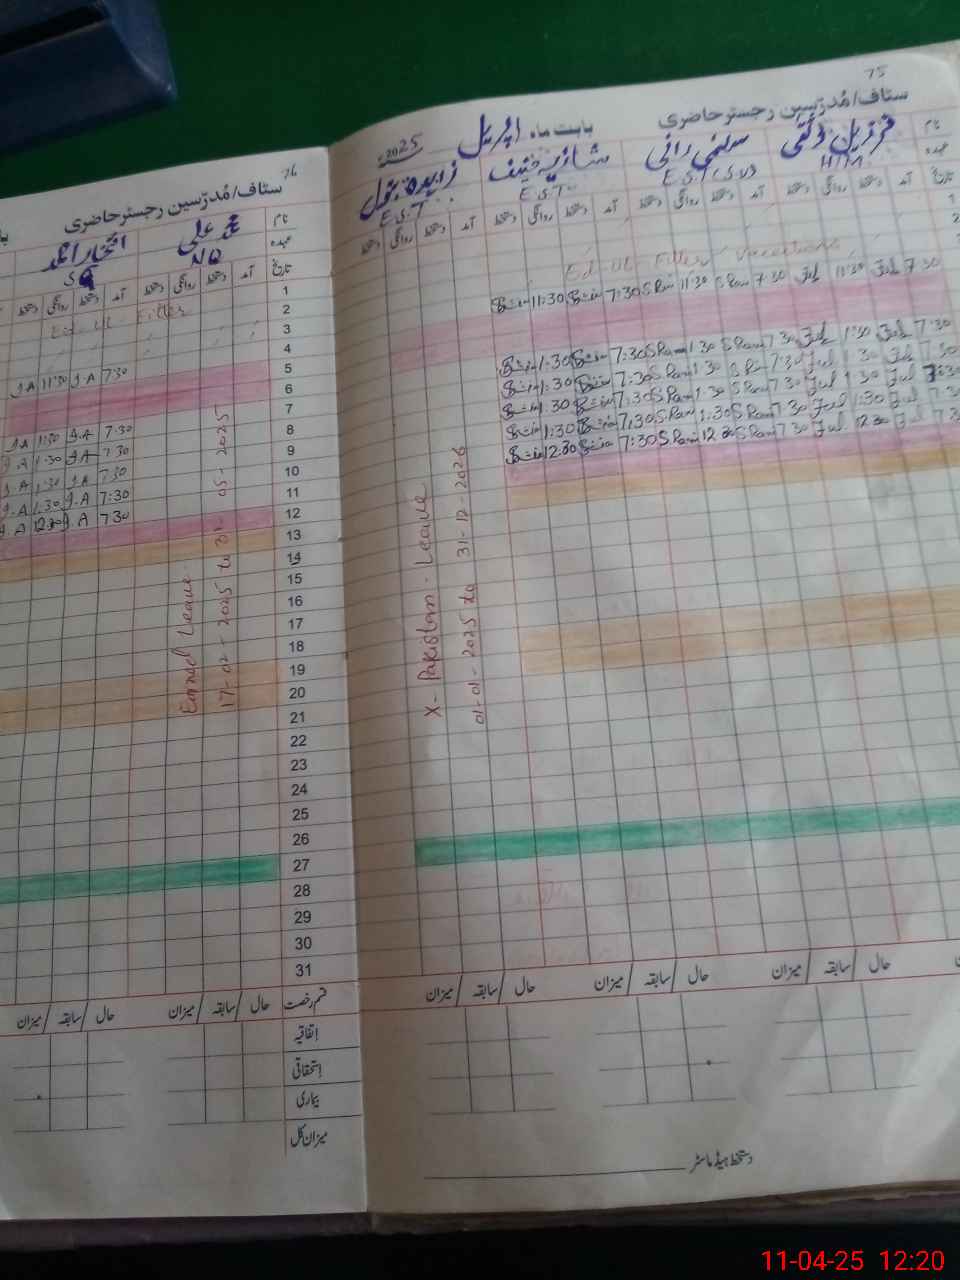 75
ستاف/مُدرّسین رجسٹر حاضری
بابت ماہ اپریل 2025
نام
فرزین
سلمی رانی
شازیہ حنیف
زاہدہ بتول
عہدہ
H.M
E.S.T (S.V)
E.S.T
E.S.T
تاریخ
آمد دستخط روانگی دستخط آمد دستخط روانگی دستخط آمد دستخط روانگی دستخط آمد دستخط روانگی دستخط
Ed-UL-Fitter Vacations
11:30 7:30 S Rani 11:30 S Rani 7:30 11:30 7:30
1:30 7:30 S Rani 1:30 S Rani 7:30 1:30 7:30
1:30 7:30 S Rani 1:30 S Rani 7:30 1:30 7:30
1:30 7:30 S Rani 1:30 S Rani 7:30 1:30 7:30
1:30 7:30 S Rani 1:30 S Rani 7:30 1:30 7:30
12:30 7:30 S Rani 12:30 S Rani 7:30 12:30 7:30
X-Pakistan-Leave
01-01-2025 to 31-12-2026
حال / سابقہ / میزان
حال / سابقہ / میزان
حال / سابقہ / میزان
دستخط ہیڈ ماسٹر
76
ستاف/مُدرّسین رجسٹر حاضری
نام
محمد علی
افتخار احمد
عہدہ
NQ
تاریخ
آمد دستخط روانگی دستخط آمد دستخط روانگی دستخط
1
2
Eid UL Fitter
3
4
5
J.A 11:30 J.A 7:30
6
7
8
J.A 1:30 J.A 7:30
9
J.A 1:30 J.A 7:30
10
J.A 1:30 J.A 7:30
11
J.A 1:30 J.A 7:30
12
J.A 12:30 J.A 7:30
13
14
15
16
17
18
19
20
21
22
23
24
25
26
27
28
29
30
31
Earned Leave
17-02-2025 to 31-05-2025
قسم رخصت
حال / سابقہ / میزان
حال / سابقہ / میزان
اتفاقیہ
استحقاقی
بیماری
میزان کل
11-04-25 12:20